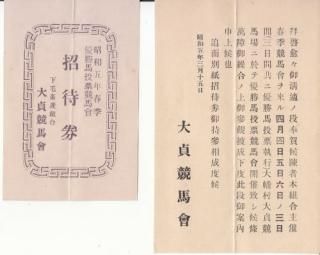 昭和五年春季
優勝馬投票競馬會
招待券
下毛畜産組合
大貞競馬會
拜啓愈々御淸適ノ段奉賀候陳者本組合主催
春季競馬會ヲ來ル四月四日五日六日ノ三日
間三日間共ニ優勝馬投票執行大幡村大貞競
馬場ニ於テ優勝馬投票競馬會開催致シ候條
萬障御繰合ノ上御參觀被成下度此段御案內
申上候也
追而別紙招待券御持參相成度候
昭和五年三月十五日
大貞競馬會